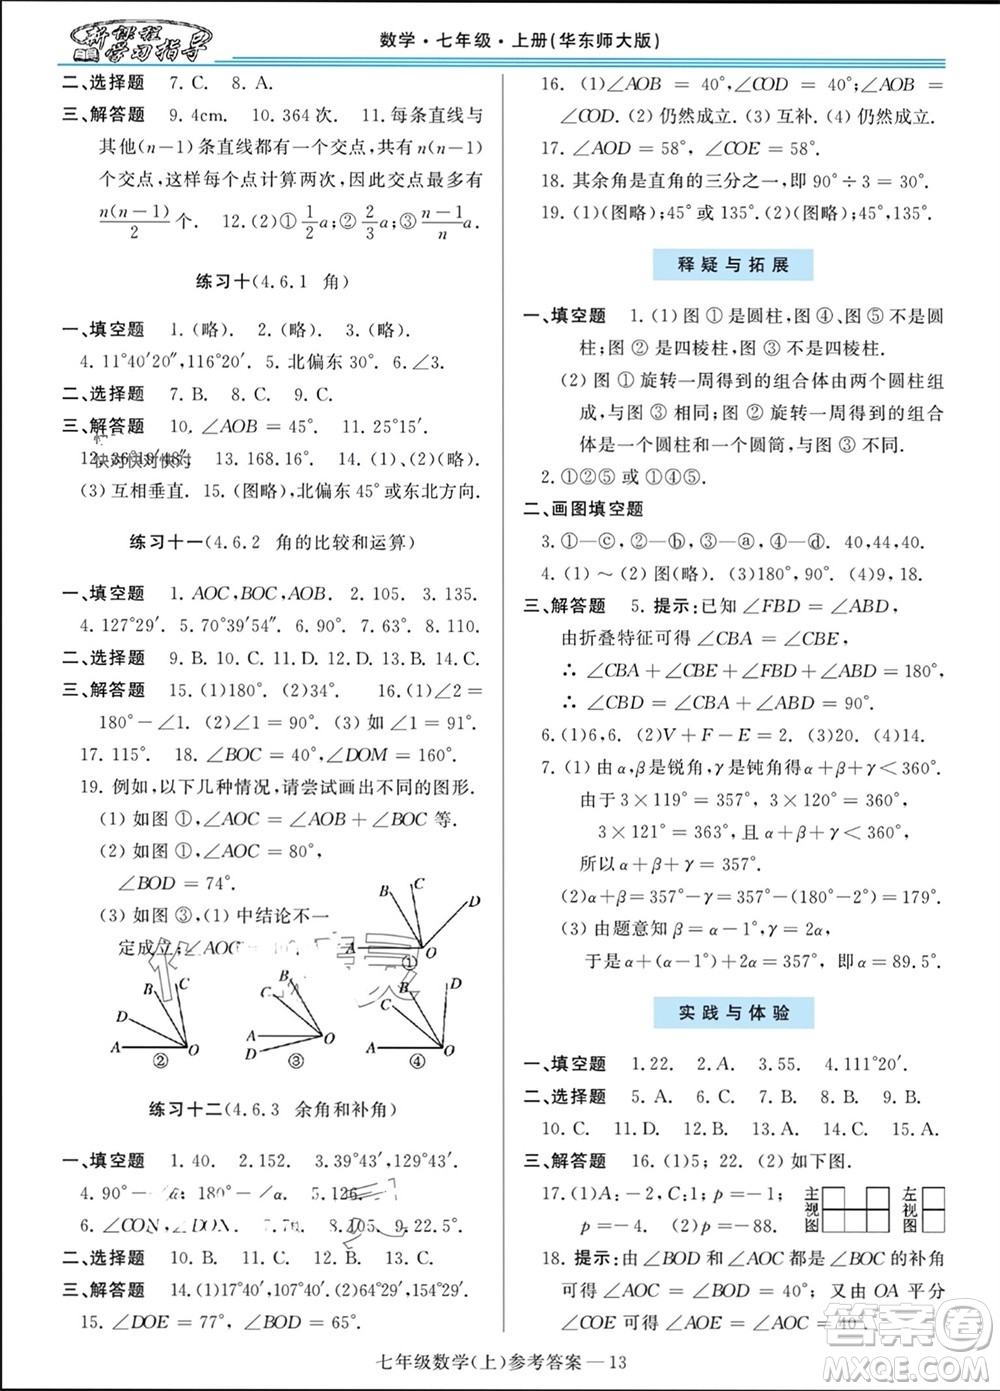 新课程
学习指导
数学·七年级·上册(华东师大版)
二、选择题 7. C. 8. A.
三、解答题 9. 4cm. 10. 364 次. 11. 每条直线与
其他(n－1)条直线都有一个交点,共有 n(n－1)
个交点,这样每个点计算两次,因此交点最多有
n(n－1)/2 个. 12. (2)① 1/2 a; ② 2/3 a; ③ n－1/n a.
练习十(4.6.1 角)
一、填空题 1. (略). 2. (略). 3. (略).
4. 11°40′20″,116°20′. 5. 北偏东 30°. 6. ∠3.
二、选择题 7. B. 8. C. 9. C.
三、解答题 10. ∠AOB＝45°. 11. 25°15′.
12. 36°19′48″. 13. 168.16°. 14. (1)(2)(图略)
(3) 互相垂直. 15. (图略),北偏东 45°或东北方向.
练习十一(4.6.2 角的比较和运算)
一、填空题 1. AOC,BOC,AOB. 2. 105. 3. 135.
4. 127°29′. 5. 70°39′54″. 6. 90°. 7. 63°. 8. 110.
二、选择题 9. B. 10. C. 11. B. 12. D. 13. B. 14. C.
三、解答题 15. (1)180°. (2)34°. 16. (1)∠2＝
180°－∠1. (2)∠1＝90°. (3) 如∠1＝91°.
17. 115°. 18. ∠BOC＝40°,∠DOM＝160°.
19. 例如,以下几种情况,请尝试画出不同的图形.
(1) 如图 ①,∠AOC＝∠AOB＋∠BOC 等.
(2) 如图 ①,∠AOC＝80°,
∠BOD＝74°.
(3) 如图 ③,(1) 中结论不一
定成立;∠AOC
B C D A O ①
B C D A O ②
B C A D O ③
B C D A O ④
练习十二(4.6.3 余角和补角)
一、填空题 1. 40. 2. 152. 3. 39°43′,129°43′.
4. 90°－∠α,180°－∠α. 5. 126.
6. ∠CON,∠DON. 8. 105. 9. 22.5°.
二、选择题 10. B. 11. C. 12. B. 13. C.
三、解答题 14. (1)17°40′,107°40′. (2)64°29′,154°29′.
15. ∠DOE＝77°,∠BOD＝65°.
16. (1)∠AOB＝40°,∠COD＝40°,∠AOB＝
∠COD. (2) 仍然成立. (3) 互补. (4) 仍然成立.
17. ∠AOD＝58°,∠COE＝58°.
18. 其余角是直角的三分之一,即 90°÷3＝30°.
19. (1)(图略);45°或 135°. (2)(图略),45°,135°.
释疑与拓展
一、填空题 1. (1) 图 ① 是圆柱,图 ④、图 ⑤ 不是圆
柱;图 ② 是四棱柱,图 ③ 不是四棱柱.
(2) 图 ① 旋转一周得到的组合体由两个圆柱组
成,与图 ③ 相同;图 ② 旋转一周得到的组合
体是一个圆柱和一个圆筒,与图 ③ 不同.
2. ①②⑤ 或 ①④⑤.
二、画图填空题
3. ①—ⓒ,②—ⓑ,③—ⓐ,④—ⓓ. 40,44,40.
4. (1)～(2) 图(略). (3)180°,90°. (4)9,18.
三、解答题 5. 提示:已知 ∠FBD＝∠ABD,
由折叠特征可得 ∠CBA＝∠CBE,
∴ ∠CBA＋∠CBE＋∠FBD＋∠ABD＝180°,
∴ ∠CBD＝∠CBA＋∠ABD＝90°.
6. (1)6,6. (2)V＋F－E＝2. (3)20. (4)14.
7. (1) 由 α,β 是锐角,γ 是钝角得 α＋β＋γ＜360°.
由于 3×119°＝357°,3×120°＝360°,
3×121°＝363°,且 α＋β＋γ＜360°,
所以 α＋β＋γ＝357°.
(2)α＋β＝357°－γ＝357°－(180°－2°)＝179°.
(3) 由题意知 β＝α－1°,γ＝2α,
于是 α＋(α－1)＋2α＝357°,即 α＝89.5°.
实践与体验
一、填空题 1. 22. 2. A. 3. 55. 4. 111°20′.
二、选择题 5. A. 6. C. 7. A. 8. B. 9. B.
10. C. 11. D. 12. B. 13. C. 14. C. 15. A.
三、解答题 16. (1)5;22. (2) 如下图.
17. (1)A:－2,C:1;p＝－1;
p＝－4. (2)p＝－88.
主视图 左视图
18. 提示:由 ∠BOD 和 ∠AOC 都是 ∠BOC 的补角
可得 ∠AOC＝∠BOD＝40°; 又由 OA 平分
∠COE 可得 ∠AOE＝∠AOC＝40°.
七年级数学(上)参考答案—13